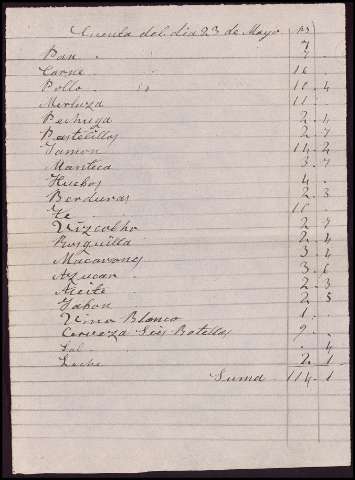 Cuenta del dia 23 de Mayo ps
Pan . 7 .
Carne . 16 .
Pollo . 10 . 4
Merluza 11 .
Pechuga 2 . 4
Pastelillos 2 . 7
Jamon 14 . 2
Manteca 3 . 7
Huebos 4 .
Berduras 2 . 3
Te 10 .
Vizcocho 2 . 7
Rosquilla 2 . 4
Macarones 3 . 4
Azucar 3 . 6
Aceite 2 . 3
Jabon 2 . 5
Vino Blanco 1 .
Cerveza Seis Botellas 9 .
Sal . 4
Leche 2 . 1
Suma 114 . 1